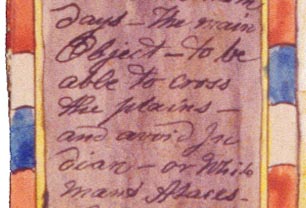 days – The main
Object – to be
able to cross
the plains –
and avoid In
dian – or Whit
mans